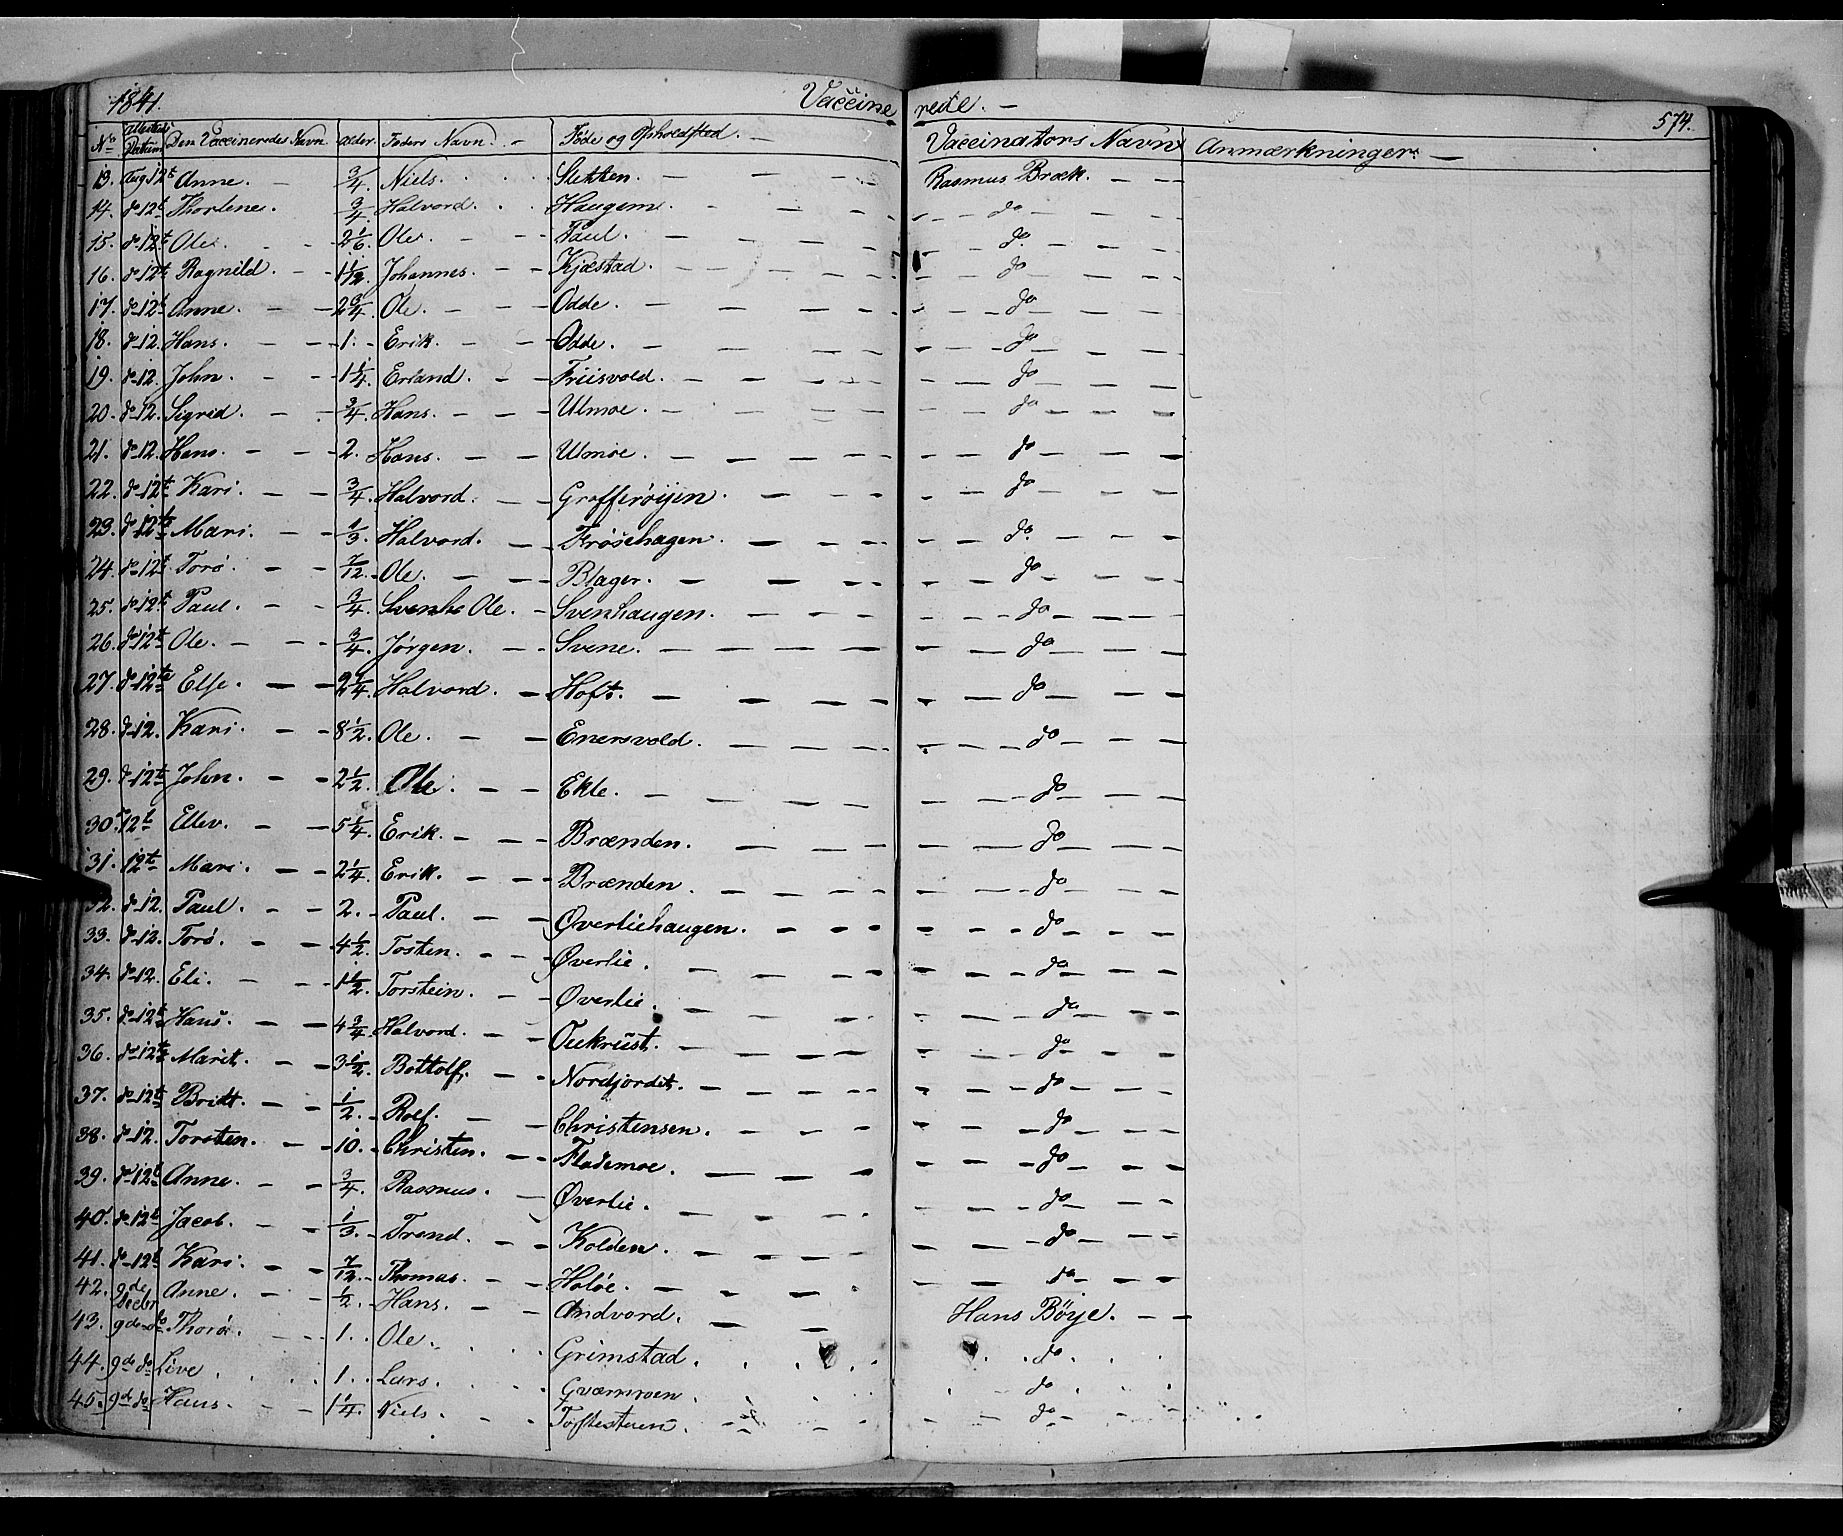 1841. Vaccinerede. — 574.
No Attestens Datum Den Vaccineredes Navn Alder. Faders Navn. - Føde og Opholdsted. — Vaccinators Navn Anmærkninger. —
13. Aug 12t Anne. - 3/4. Niels. Sletten. - - Rasmus Bræk. - -
14. do 12t Thorlene. 3/4. Halvord. Haugem. - - do
15. do 12t Ole. - - 2 1/6. Ole. - - Paul. - - do
16. do 12t Ragnild. - - 1 1/12. Johannes. - - Kjæstad. - - do
17. do 12t Anne. - - 2 3/4. Ole. - - Odde. - - do
18. do 12. Hans. - - 1. - Erik. - - Odde. - - do
19. do 12. John. - - 1 1/4. Erland. - - Friisvold. - - do
20. do 12. Sigrid. - - 3/4. Hans. - - Ulmoe. - - do
21. do 12. Hans. - - 2. Hans. - - Ulmoe. - - do
22. do 12t Kari. - - 3/4. Halvord. - - Grafferøijen. - - do
23. do 12te Mari. - - 1/3. Halvord. - Frøsehagen. - - do
24. do 12t Torø. - - 7/12. Ole. - - Blager. - - do
25. do 12t Paul. - - 3/4. Ole. - Svenhaugen. - - do
26. do 12t Ole. - - 3/4. Jørgen. - - Svene. - - do
27. do 12te Else. - - 2 1/4. Halvord. - Hoft. - - do
28. do 12. Kari. - - 8 1/2. Ole. - - Enersvold. - - do
29. do 12t John. - - 2 1/2. Ole. - - Ekle. - - do
30. 12t Ellev. - - 5 1/4. Erik. - - Brænden. - - do
31. 12t Mari. - - 2 1/4. Erik. - - Brænden. - - do
32. do 12. Paul. - - 2. - Paul. - - Øverliehaugen. - - do
33. do 12. Torø. - - 4 1/2. Tosten. - - Øverlie. - - do
34. do 12. Eli. - - 1 1/2. Torstein. - - Øverlie. - - do
35. do 12t Hans. - - 4 3/4. Halvord. - - Oukrust. - - do
36. do 12te Marit. - - 3 1/2. Bottolf. - - Nordjordet. - - do
37. do 12t Britt. - - 1/2. - Rolf. - - Christensen. - - do
38. do 12. Torsten. - - 10. - Christen. - - Flademoe. - - do
39. do 12t Anne. - - 3/4. Rasmus. - Øverlie. - - do
40. do 12t Jacob. - - 1/3. - Trond. - - Kolden. - - do
41. do 12t Kari. - - 7/12. - Thomas. - - Holøe. - - do
42. 9de Decbr Anne. - - 1/2. - Hans. - - Andvord. - - Hans Börje. - -
43. 9de do Thorø. - - 1. Ole. Grimstad. do
44. 9de do Live 1. Lars. Gværnroen. do
45. 9de do Hans. - - 1 1/4. Niels. - - Toftesteuen. - - do